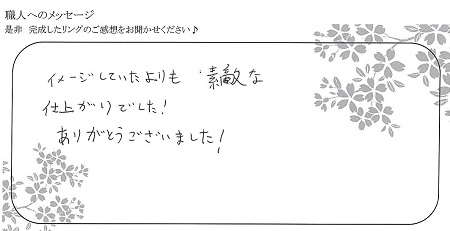 職人へのメッセージ
是非 完成したリングのご感想をお聞かせください♪
イメージしていたよりも 素敵な
仕上がりでした!
ありがとうございました!